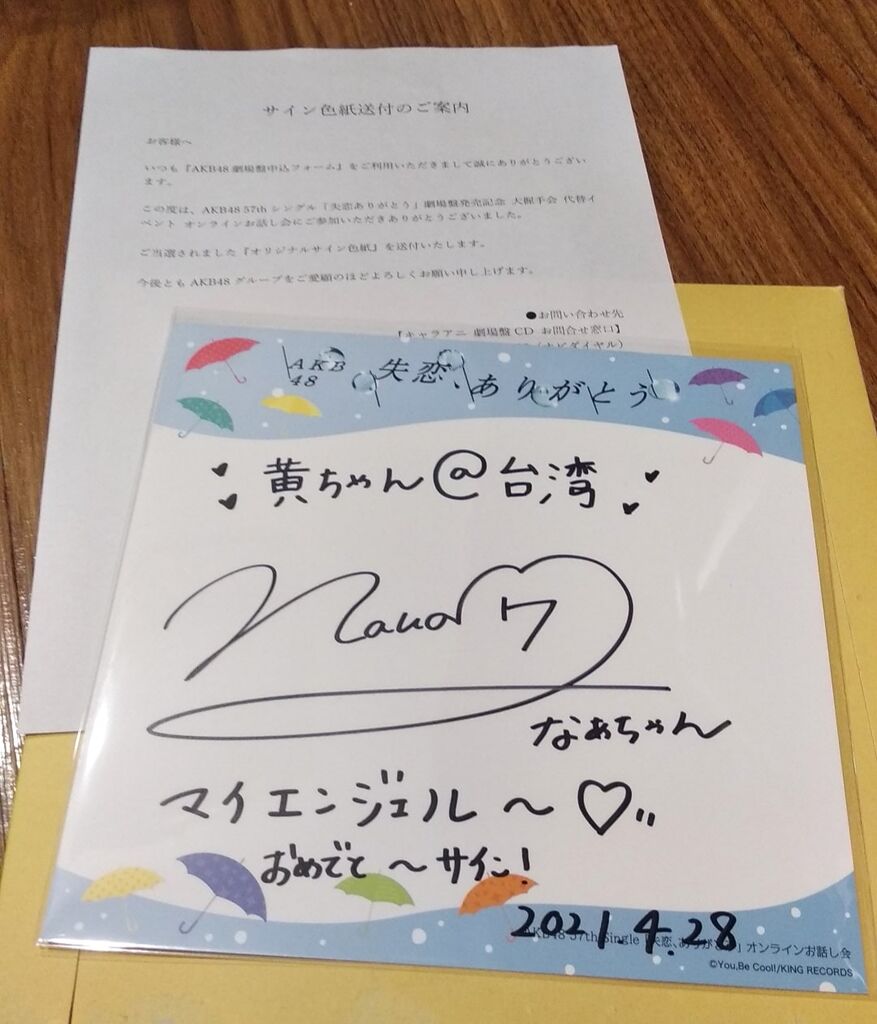 サイン色紙送付のご案内
お客様へ
いつも『AKB48 劇場盤申込フォーム』をご利用いただきまして誠にありがとうござい
ます。
この度は、AKB48 57th シングル「失恋ありがとう」劇場盤発売記念 大握手会 代替イ
ベント オンラインお話し会にご参加いただきありがとうございました。
ご当選されました『オリジナルサイン色紙』を送付いたします。
今後とも AKB48 グループをご愛顧のほどよろしくお願い申し上げます。
●お問い合わせ先
【キャラアニ 劇場盤 CD お問合せ窓口】
ナビダイヤル）
AKB
48
失恋、ありがとう
黄ちゃん@台湾
なぁちゃん
マイエンジェル～♡
おめでと～サイン!
2021.4.28
57th Single「失恋、ありがとう」オンラインお話し会
©You,Be Cool!/KING RECORDS